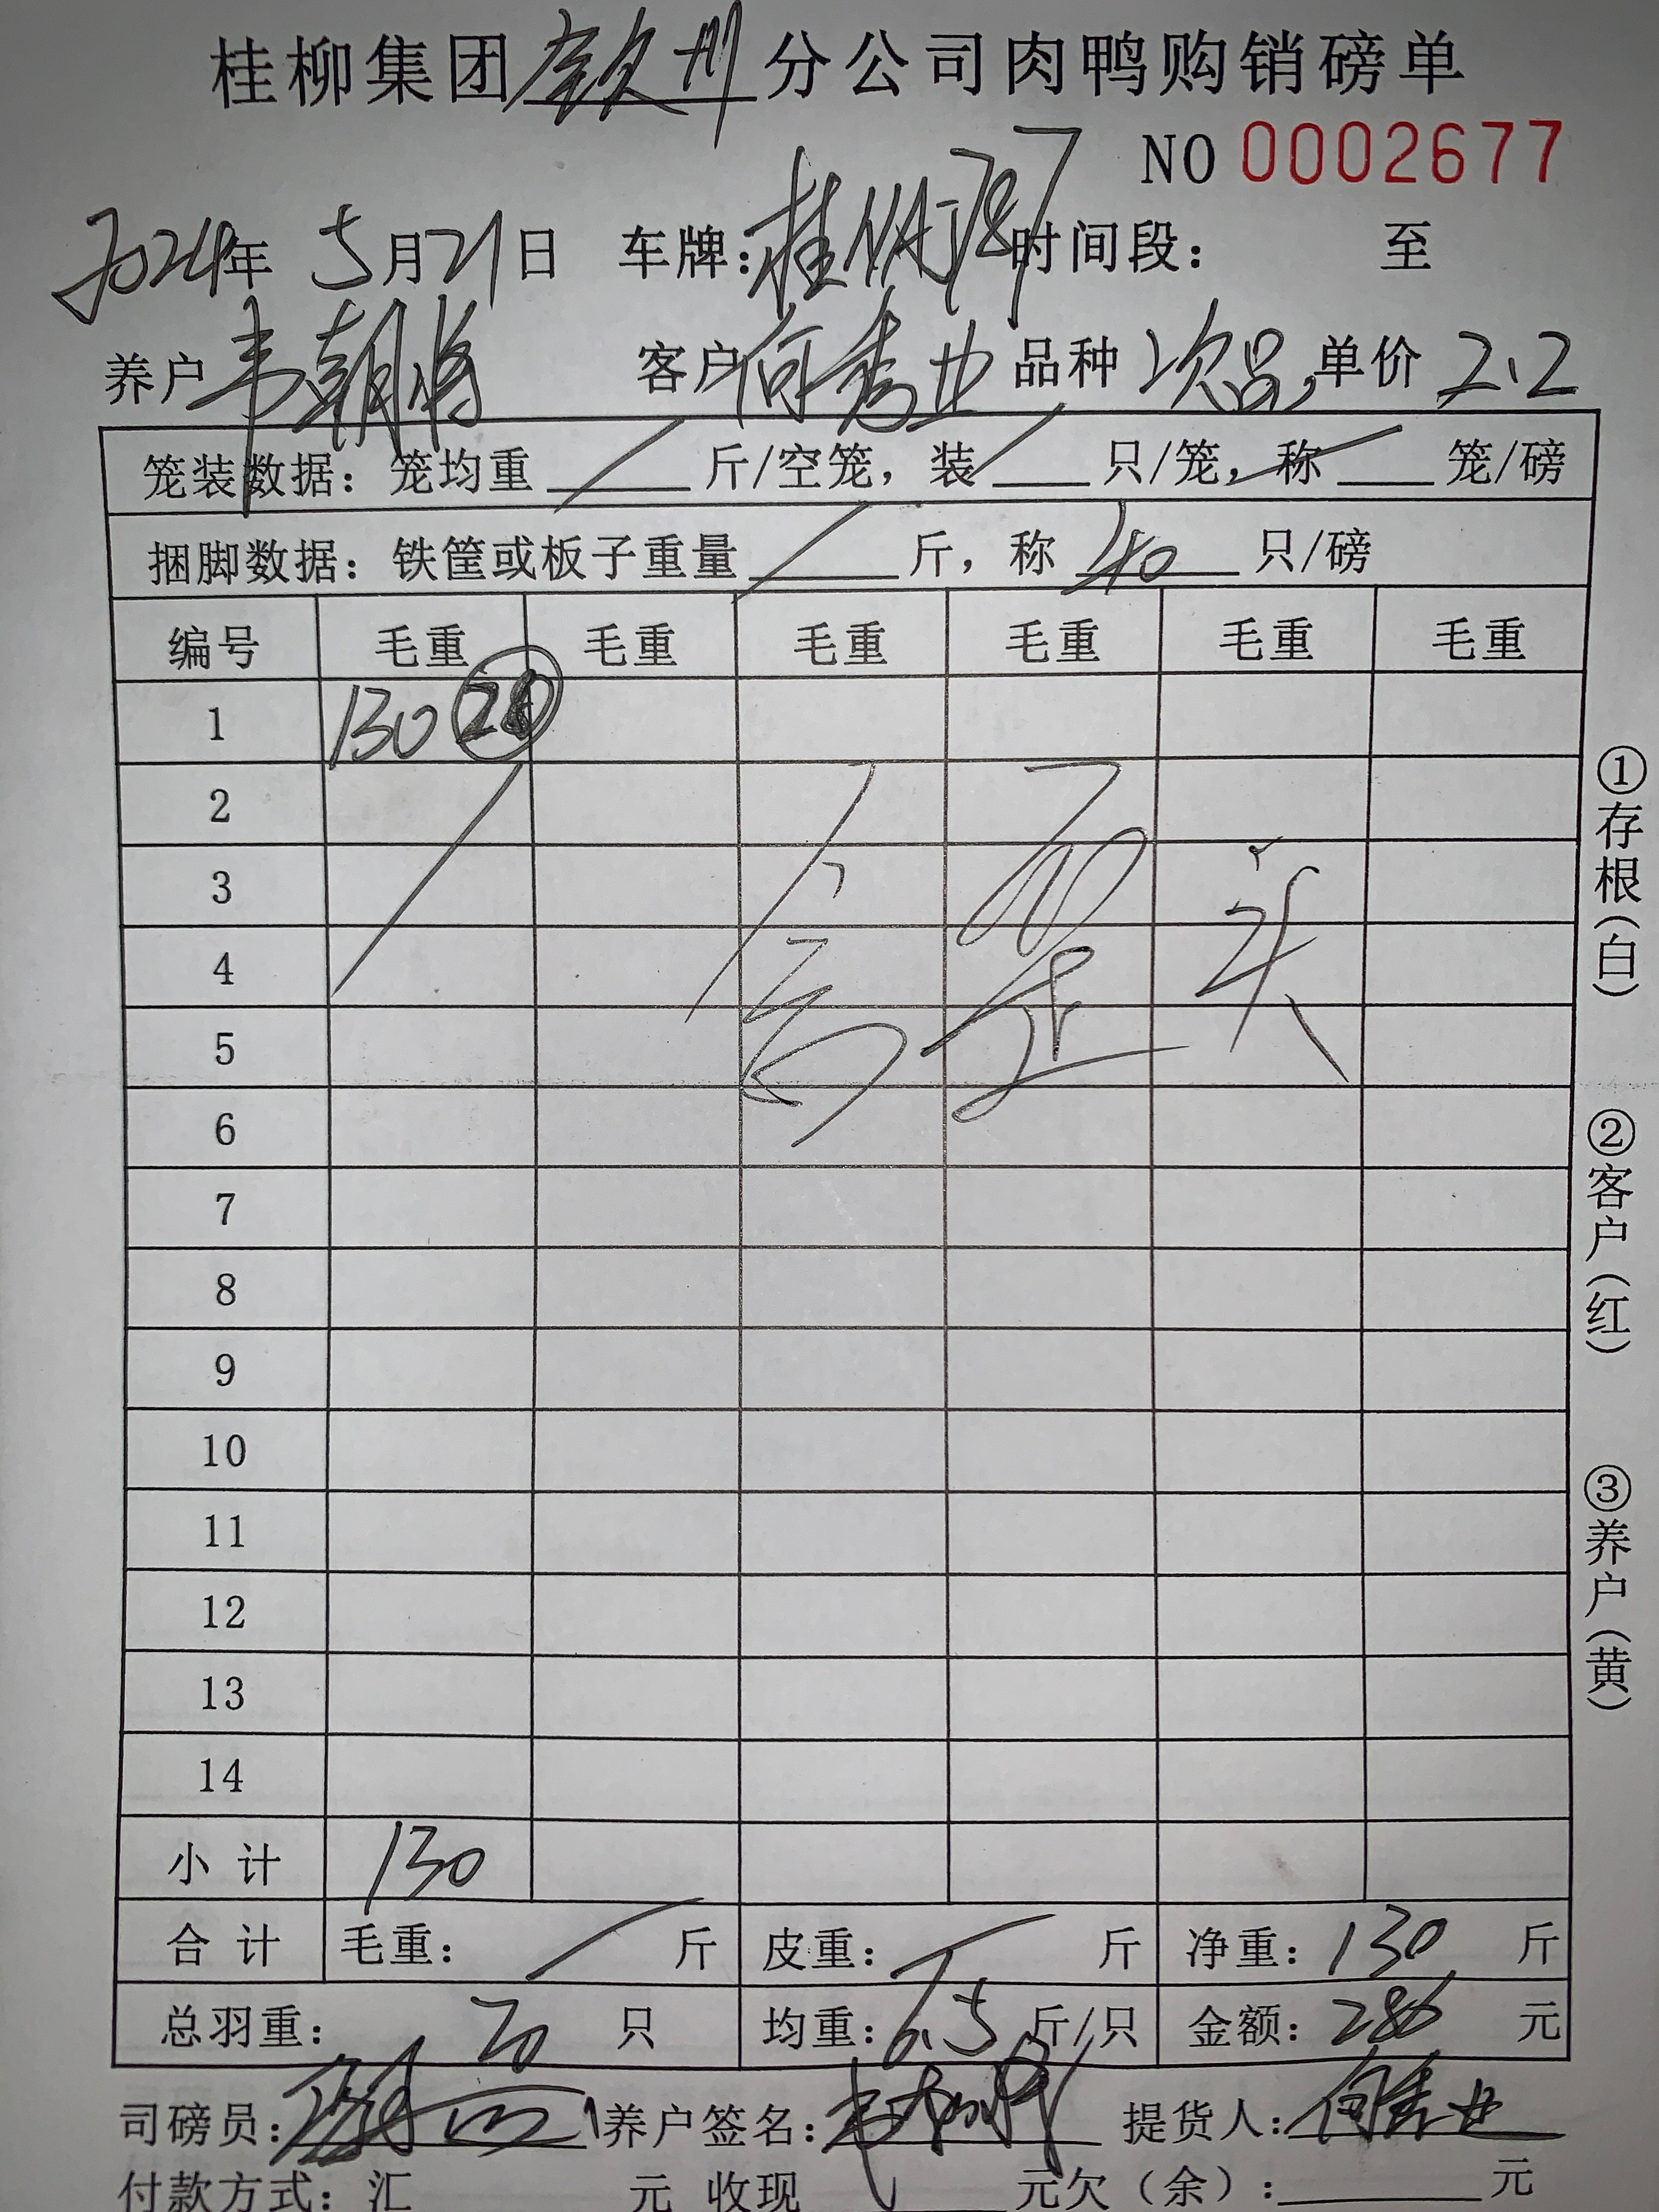 桂柳集团钦州分公司肉鸭购销磅单
NO 0002677
2024年 5月21日 车牌：桂 时间段： 至
养户韦朝将 客户何秀业 品种 次品 单价 2.2
笼装数据：笼均重 斤/空笼，装 只/笼，称 笼/磅
捆脚数据：铁筐或板子重量 斤，称 只/磅
编号 毛重 毛重 毛重 毛重 毛重 毛重
1 130
2
3
4
5
6
7
8
9
10
11
12
13
14
小计 130
合计 毛重： 斤 皮重： 斤 净重：130 斤
总羽重： 20 只 均重：6.5 斤/只 金额：286 元
司磅员： 养户签名： 提货人：何秀业
付款方式：汇 元 收现 元欠（余）： 元
①存根（白）
②客户（红）
③养户（黄）